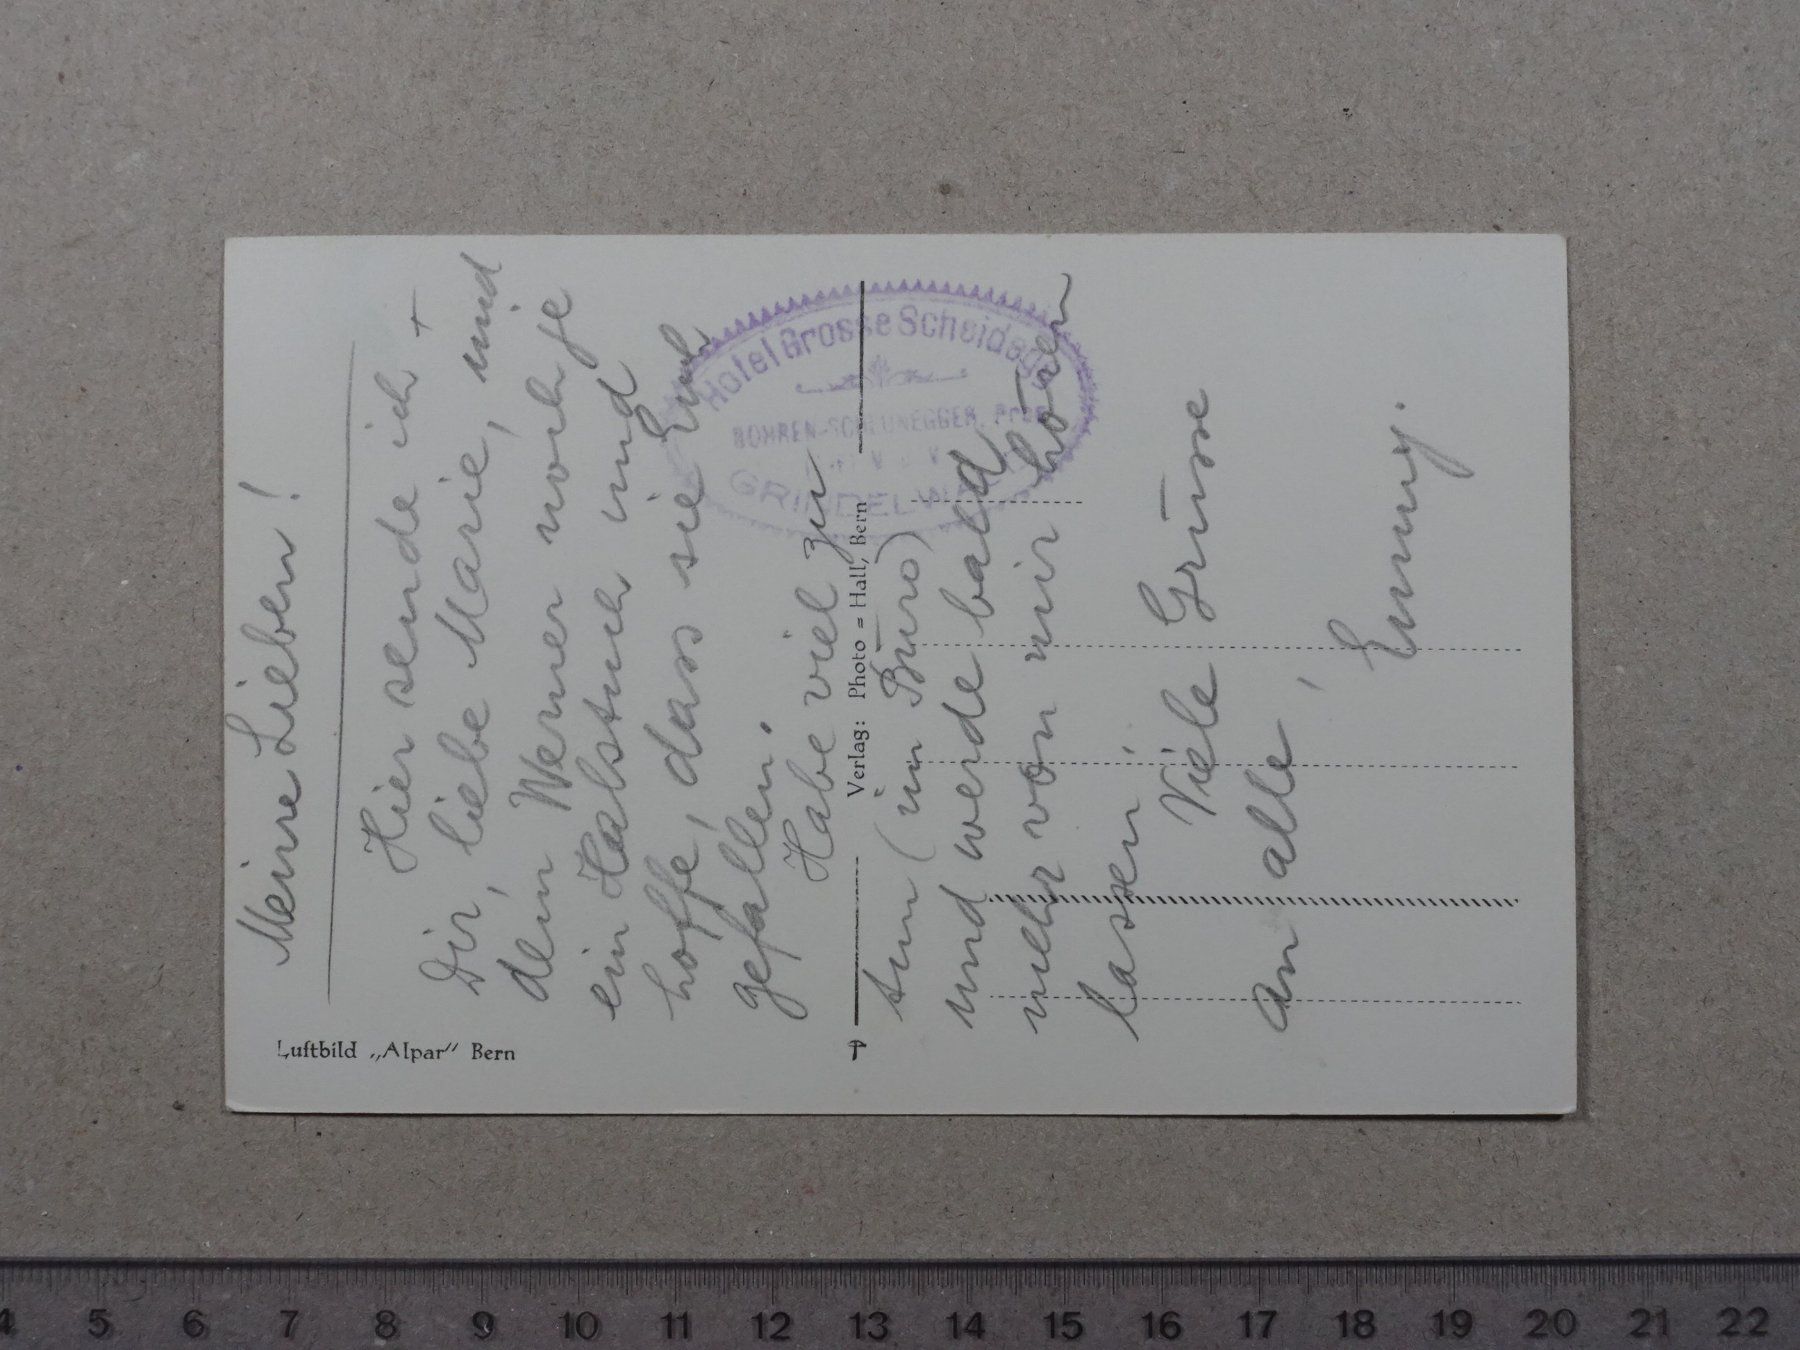 Meine Lieben!
Hier sende ich +
Dir, liebe Marie, und
dem Werner noch je
ein Halstuch und
hoffe, dass sie Euch
gefallen.
Habe viel zu
tun (im Büro)
und werde bald
mehr von mir hören
lassen.
Viele Grüsse
an alle,
Emmy.
Luftbild „Alpar" Bern
Verlag: Photo = Hall, Bern
Hotel Grosse Scheidegg
BOHREN-SCHLUNEGGER, Prop.
GRINDELWALD
4 5 6 7 8 9 10 11 12 13 14 15 16 17 18 19 20 21 22